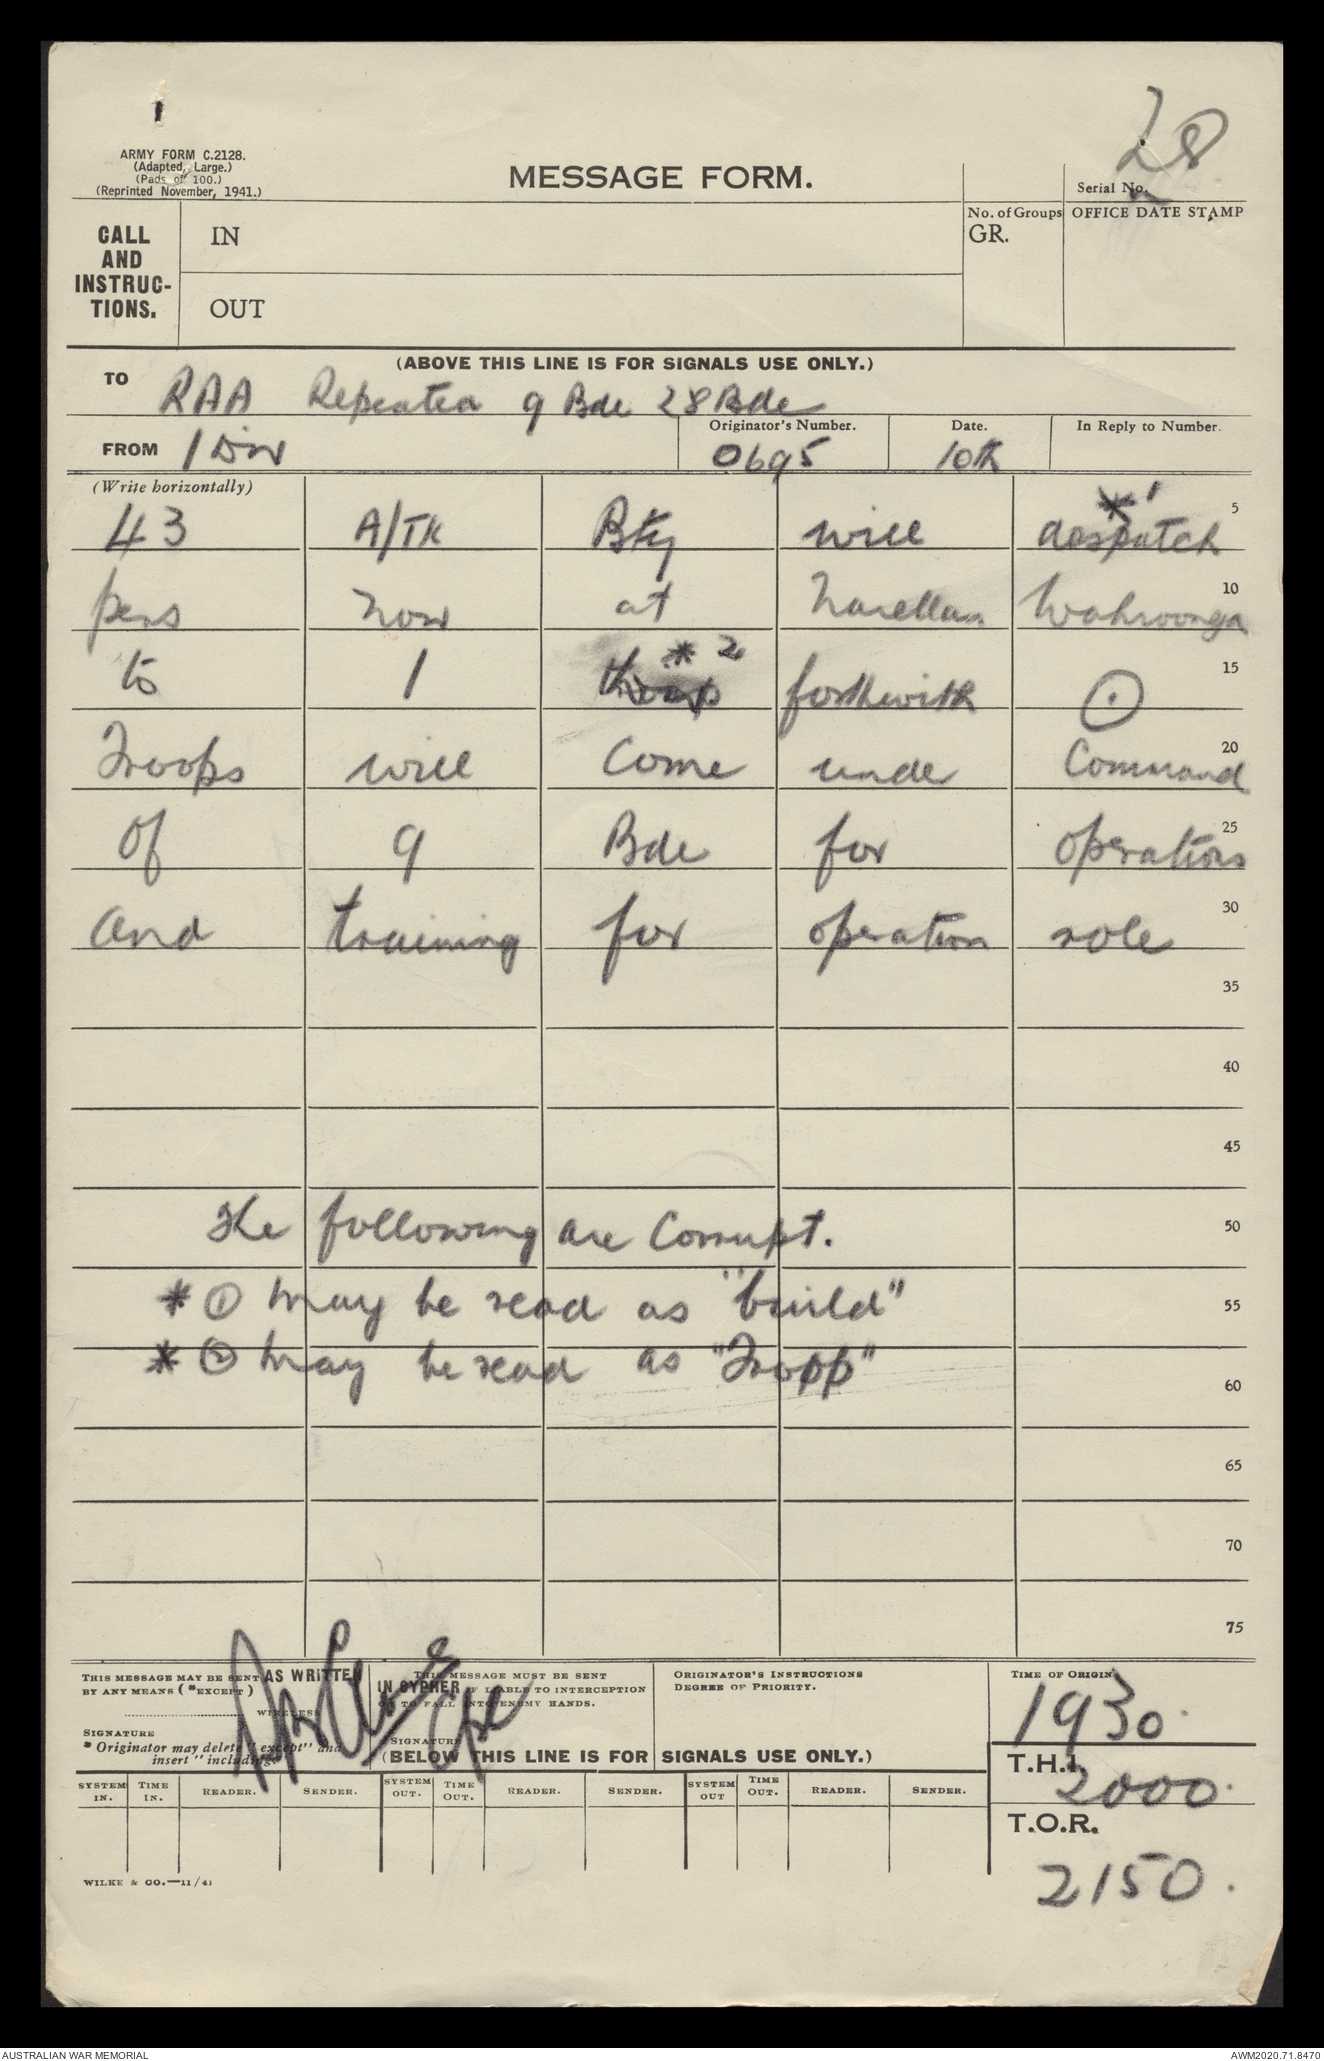 28
ARMY FORM C.2128.
(Adapted, Large.)
(Pads of 100.)
(Reprinted November, 1941.)
MESSAGE FORM.
Serial No.
CALL AND INSTRUC- TIONS.
IN
No. of Groups
GR.
OFFICE DATE STAMP
OUT
(ABOVE THIS LINE IS FOR SIGNALS USE ONLY.)
TO RAA Repeated 9 Bde 28 Bde
FROM 1 Div
Originator's Number. 0695
Date. 10th
In Reply to Number.
(Write horizontally)
43 A/TK Bty will despatch *1 5
pers now at Narellan Wahroonga 10
to 1 troop *2 forthwith ⊙ 15
Troops will come under Command 20
of 9 Bde for operations 25
and training for operation role 30
35
40
45
The following are Corrupt. 50
* ① may be read as "build" 55
* ② may be read as "Tropp"
60
65
70
75
THIS MESSAGE MAY BE SENT AS WRITTEN
BY ANY MEANS (*EXCEPT)
WIRELESS
SIGNATURE
* Originator may delete "except" and
insert "including."
THIS MESSAGE MUST BE SENT
IN CYPHER IF LIABLE TO INTERCEPTION
OR TO FALL INTO ENEMY HANDS.
SIGNATURE
ORIGINATOR'S INSTRUCTIONS
DEGREE OF PRIORITY.
TIME OF ORIGIN
1930.
(BELOW THIS LINE IS FOR SIGNALS USE ONLY.)
T.H.I.
2000.
SYSTEM IN. TIME IN. READER. SENDER. SYSTEM OUT. TIME OUT. READER. SENDER. SYSTEM OUT TIME OUT. READER. SENDER.
T.O.R.
2150.
WILKE & CO.—11/41
AUSTRALIAN WAR MEMORIAL
AWM2020.71.8470